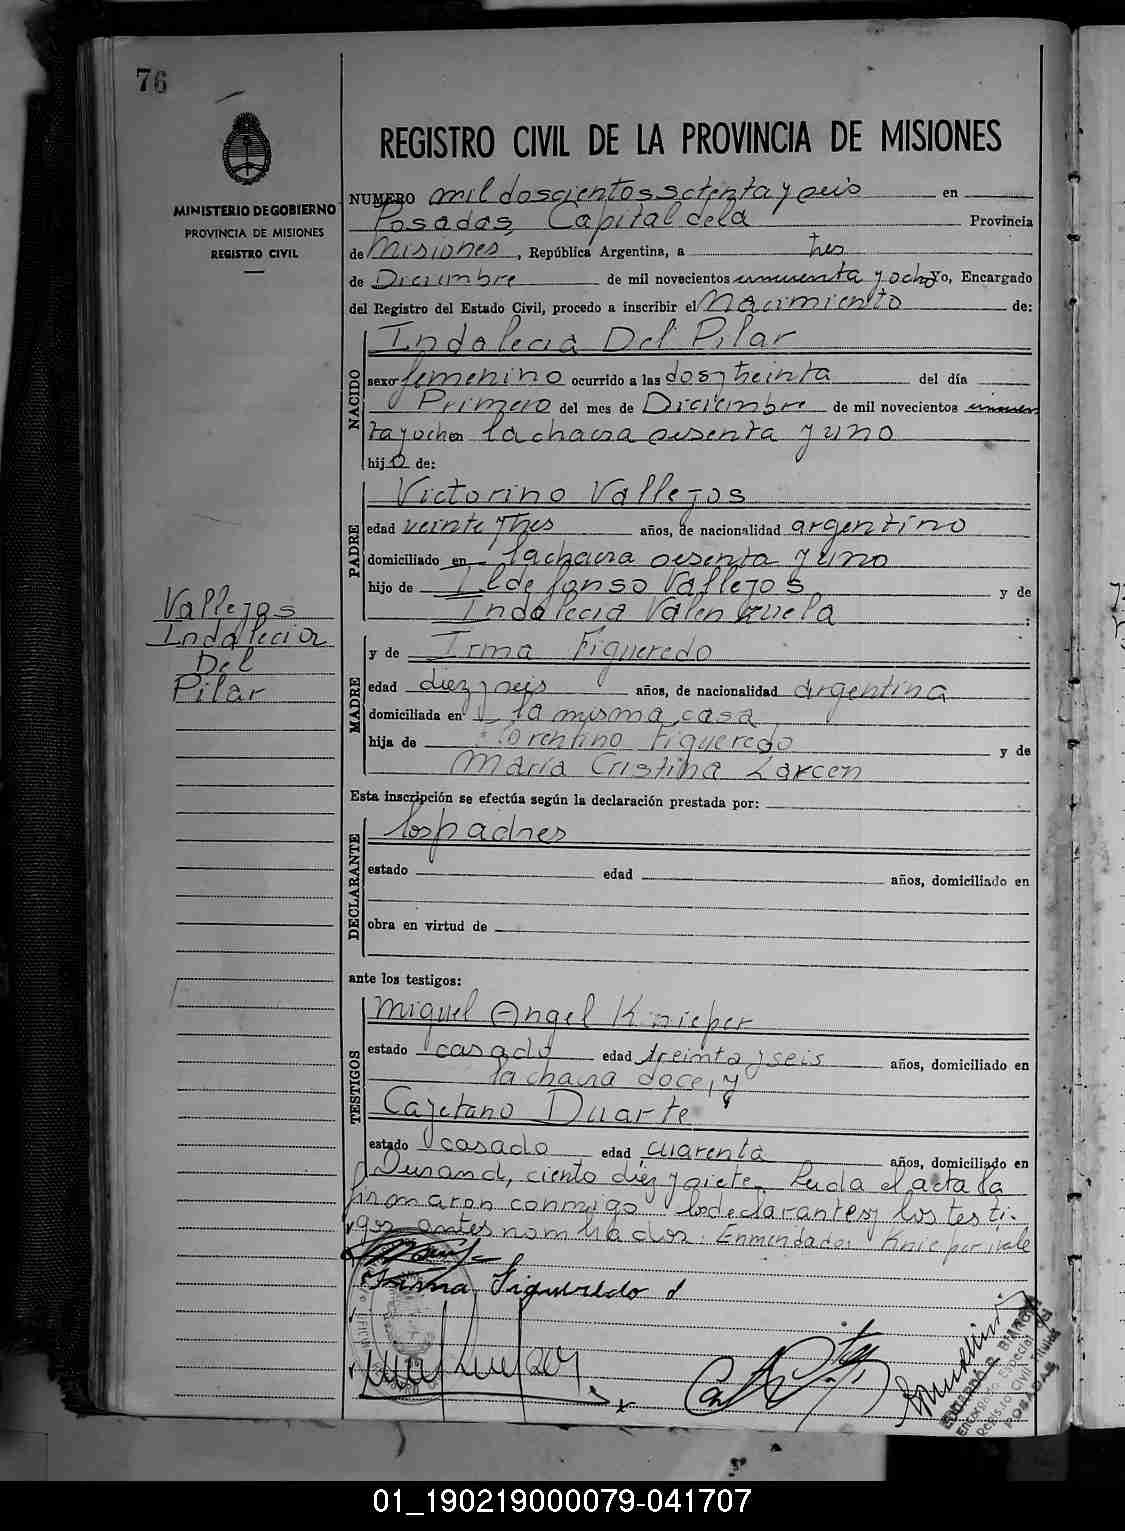 76
MINISTERIO DE GOBIERNO
PROVINCIA DE MISIONES
REGISTRO CIVIL
Vallejos
Indalecia
Del
Pilar
REGISTRO CIVIL DE LA PROVINCIA DE MISIONES
NUMERO mil doscientos setenta y seis en
Posadas, Capital de la Provincia
de Misiones, República Argentina, a tres
de Diciembre de mil novecientos cincuenta y ocho Yo, Encargado
del Registro del Estado Civil, procedo a inscribir el Nacimiento de:
NACIDO
Indalecia Del Pilar
sexo femenino ocurrido a las dos y treinta del día
Primero del mes de Diciembre de mil novecientos cincuen
ta y ocho en la chacra sesenta y uno
hija de:
PADRE
Victorino Vallejos
edad veinte y tres años, de nacionalidad argentino
domiciliado en la chacra sesenta y uno
hijo de Ildefonso Vallejos y de
Indalecia Valenzuela :
MADRE
y de Irma Figueredo
edad diez y seis años, de nacionalidad argentina
domiciliada en la misma casa
hija de Florentino Figueredo y de
María Cristina Larcen
Esta inscripción se efectúa según la declaración prestada por:
DECLARANTE
los padres
estado edad años, domiciliado en
obra en virtud de
ante los testigos:
TESTIGOS
Miguel Angel Knieper
estado casado edad treinta y seis años, domiciliado en
la chacra doce, y
Cayetano Duarte
estado casado edad cuarenta años, domiciliado en
Durand, ciento diez y siete. Leida el acta la
firmaron conmigo los declarantes y los testi-
gos antes nombrados. Enmendado: Knieper: vale
Irma Figueredo
EDUARDO R.
Encargado Especial
Registro Civil
POSADAS
01_190219000079-041707